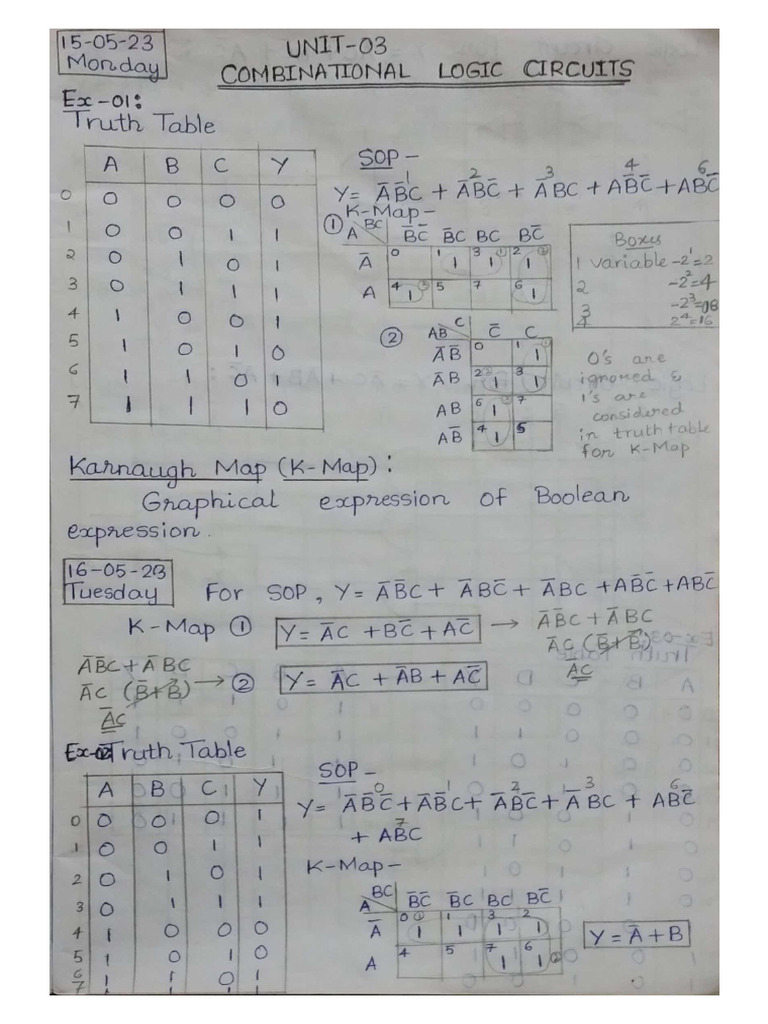 15-05-23
Monday
UNIT-03
COMBINATIONAL LOGIC CIRCUITS
Ex-01:
Truth Table
A B C Y
0 0 0 0 0
1 0 0 1 1
2 0 1 0 1
3 0 1 1 1
4 1 0 0 1
5 1 0 1 0
6 1 1 0 1
7 1 1 1 0
SOP -
1 2 3 4 6
Y = A̅B̅C + A̅BC̅ + A̅BC + AB̅C̅ + ABC̅
K-Map -
① A BC B̅C̅ B̅C BC BC̅
A̅ 0 1 1 3 1 ① 2 1 ②
A 4 1 ③ 5 7 6 1
Boxes
1 variable - 2¹=2
2 - 2²=4
3 - 2³=08
4 2⁴=16
② AB C C̅ C
A̅B̅ 0 1 1 ①
A̅B 2 1 ② 3 1
AB 6 1 ③ 7
AB̅ 4 1 5
0's are
ignored &
1's are
considered
in truth table
for K-Map
Karnaugh Map (K-Map):
Graphical expression of Boolean
expression.
16-05-23
Tuesday
For SOP, Y = A̅B̅C + A̅BC̅ + A̅BC + AB̅C̅ + ABC̅
K-Map ① Y = A̅C + BC̅ + AC̅ → A̅B̅C + A̅BC
A̅C (B̅+B)
A̅C
A̅B̅C + A̅BC
A̅C (B̅+B) → ② Y = A̅C + A̅B + AC̅
A̅C
Ex-02 Truth Table
A B C Y
0 0 0 0 1
1 0 0 1 1
2 0 1 0 1
3 0 1 1 1
4 1 0 0 0
5 1 0 1 0
6 1 1 0 1
7 1 1 1 1
SOP -
0 1 2 3 6
Y = A̅B̅C̅ + A̅B̅C + A̅BC̅ + A̅BC + ABC̅
7
+ ABC
K-Map -
A BC B̅C̅ B̅C BC BC̅
A̅ 0 1 ① 1 1 3 1 2 1
A 4 5 7 1 6 1 ②
Y = A̅ + B